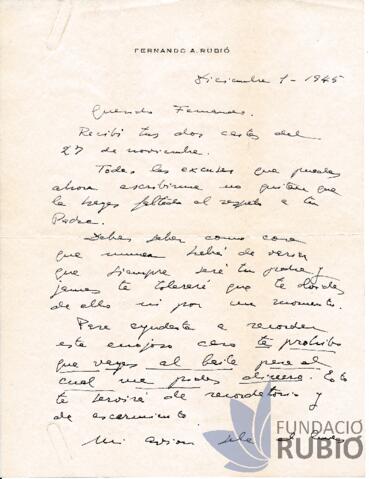 FERNANDO A. RUBIÓ
Diciembre 1 - 1945
Querido Fernando.
Recibí tus dos cartas del
27 de noviembre.
Todas las excusas que puedas
ahora escribirme no quitan que
la hayas faltado al respeto a tu
Padre.
Debes saber como cosa
que nunca habrá de variar
que siempre seré tu padre y
jamás te toleraré que te olvides
de ello ni por un momento.
Para ayudarte a recordar
este enojoso caso te prohibo
que vayas al baile para el
cual me pides dinero. Esto
te servirá de recordatorio y
de escarmiento.
Mi avion sale el lunes
FUNDACIÓ
RUBIÓ